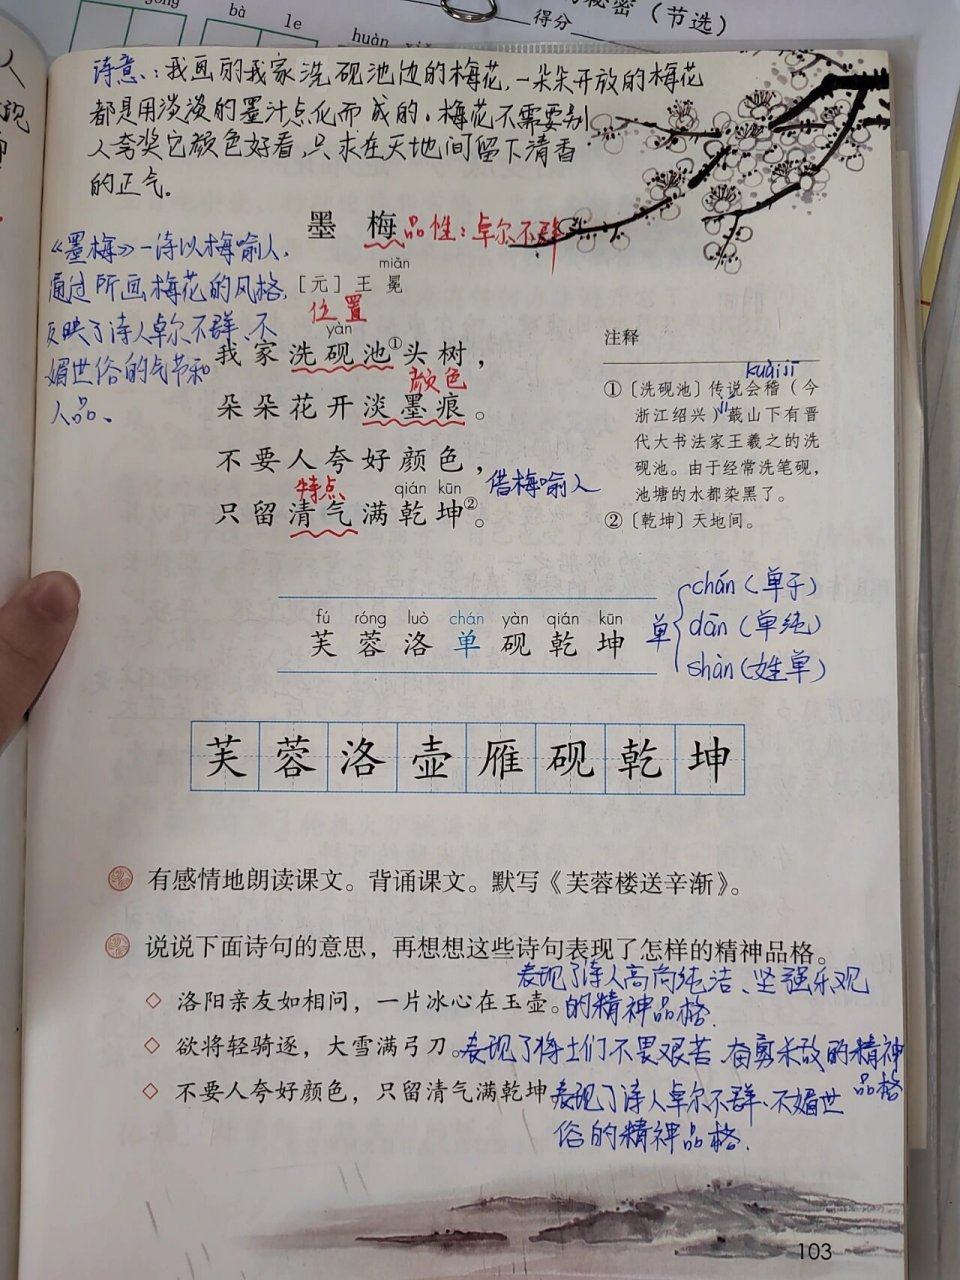 bà le
得分
（节选）
huàn
诗意：我画的我家洗砚池边的梅花，一朵朵开放的梅花
都是用淡淡的墨汁点化而成的。梅花不需要别
人夸奖它颜色好看，只求在天地间留下清香
的正气。
墨 梅
品性：卓尔不群
miǎn
[元] 王 冕
《墨梅》一诗以梅喻人，
通过所画梅花的风格，
反映了诗人卓尔不群、不
媚世俗的气节和
人品、
位置
yàn
我家洗砚池①头树，
颜色
朵朵花开淡墨痕。
不要人夸好颜色，
特点
qián kūn
借梅喻人
只留清气满乾坤②。
注释
kuàijī
①〔洗砚池〕传说会稽（今
浙江绍兴）蕺山下有晋
代大书法家王羲之的洗
砚池。由于经常洗笔砚，
池塘的水都染黑了。
②〔乾坤〕天地间。
fú róng luò chán yàn qián kūn
芙 蓉 洛 单 砚 乾 坤
单
chán（单于）
dān（单纯）
shàn（姓单）
芙 蓉 洛 壶 雁 砚 乾 坤
有感情地朗读课文。背诵课文。默写《芙蓉楼送辛渐》。
说说下面诗句的意思，再想想这些诗句表现了怎样的精神品格。
表现了诗人高尚纯洁、坚强乐观
洛阳亲友如相问，一片冰心在玉壶。的精神品格.
欲将轻骑逐，大雪满弓刀。表现了将士们不畏艰苦、奋勇杀敌的精神
品格
不要人夸好颜色，只留清气满乾坤表现了诗人卓尔不群、不媚世
俗的精神品格.
103